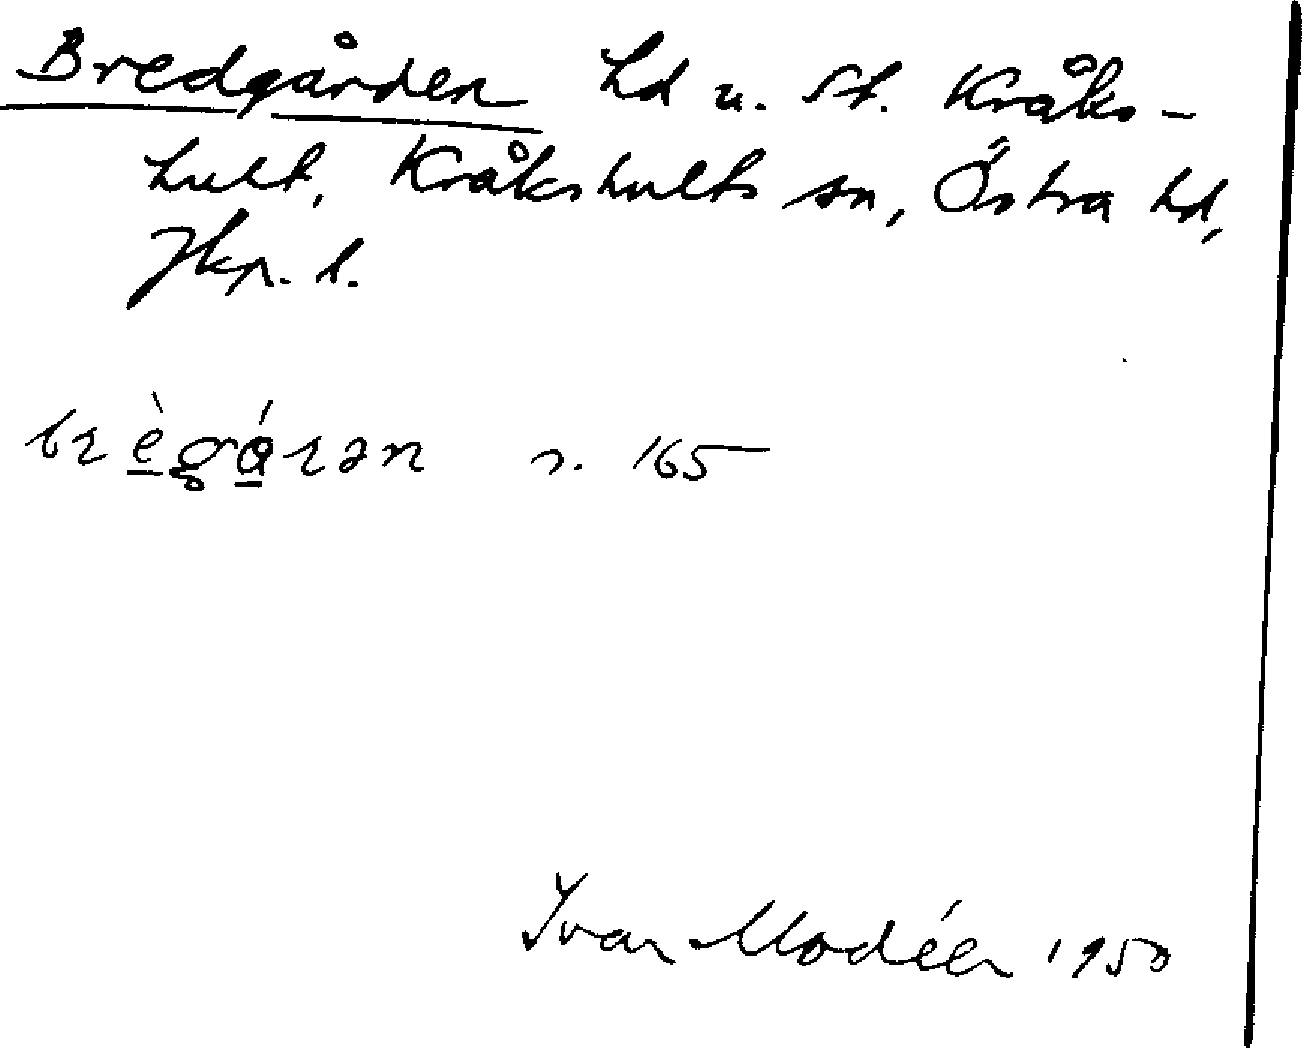 Bredgården hd u. St. Kråks-
hult, Kråkshults sn, Östra hd,
Jkp. l.
s. 165
Ivar Modéer 1950